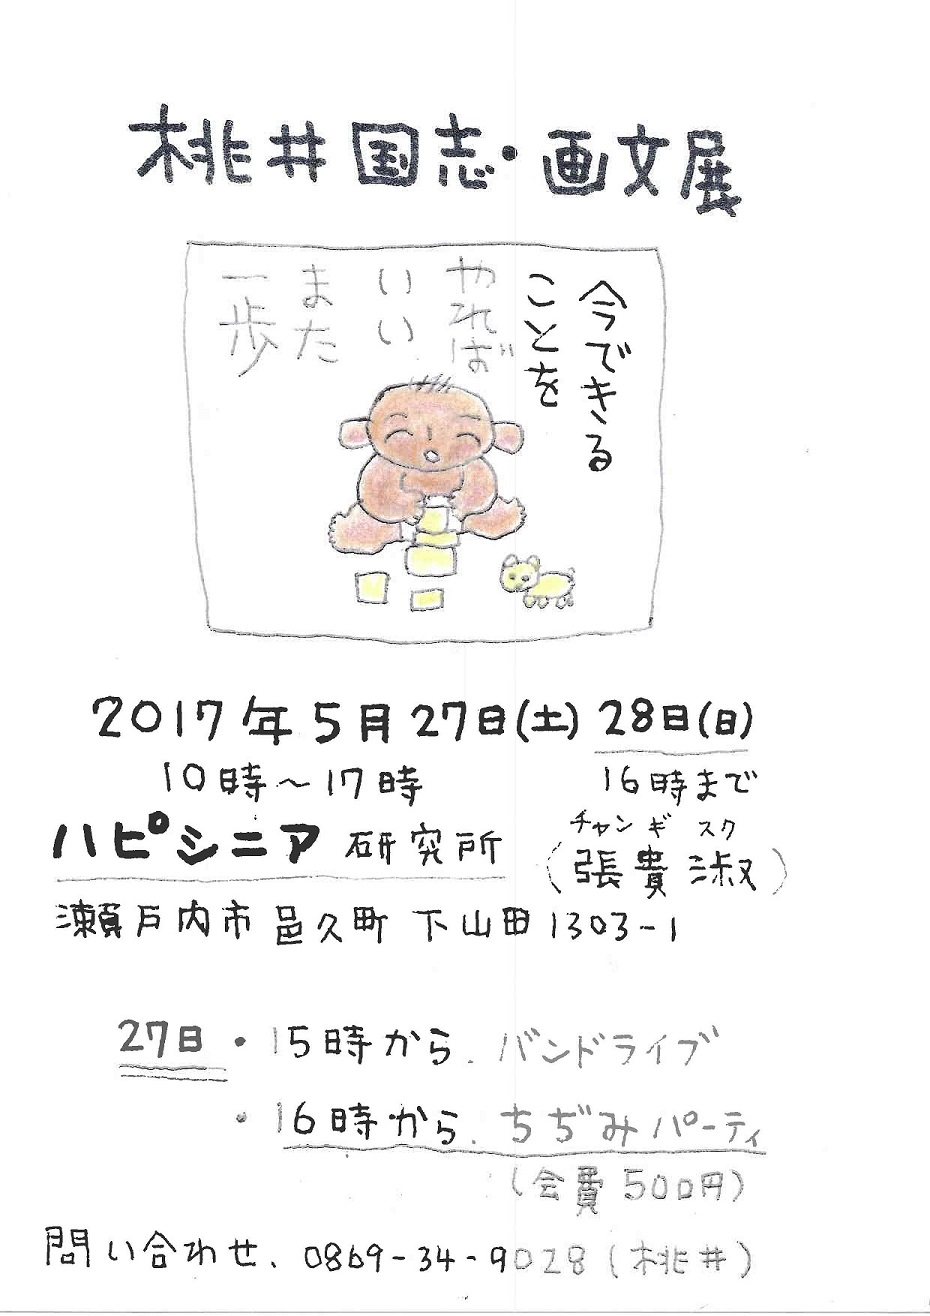 桃井国志・画文展
今できる
ことを
やれば
いい
また
一歩
2017年5月27日(土) 28日(日)
10時～17時 16時まで
チャンギスク
ハピシニア研究所 (張貴淑)
瀬戸内市邑久町下山田1303-1
27日・15時から.バンドライブ
・16時から.ちぢみパーティ
(会費500円)
問い合わせ、0869-34-9028(桃井)